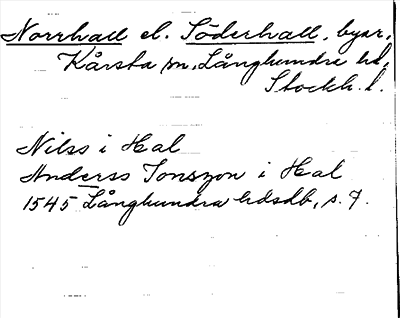 Norrhall el. Söderhall, byar,
Kårsta sn, Långhundra hd,
Stockh. l.
Nilss i Hal
Anderss Jonszon i Hal
1545 Långhundra hdsdb, s. 7.